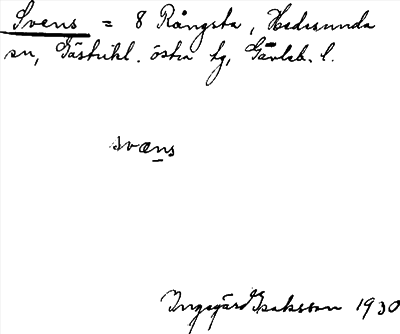 Svens = 8 Rångsta, Hedesunda
sn, Gästrikl. östra tg, Gävleb. l.
svæns
Ingegärd Isaksson 1930